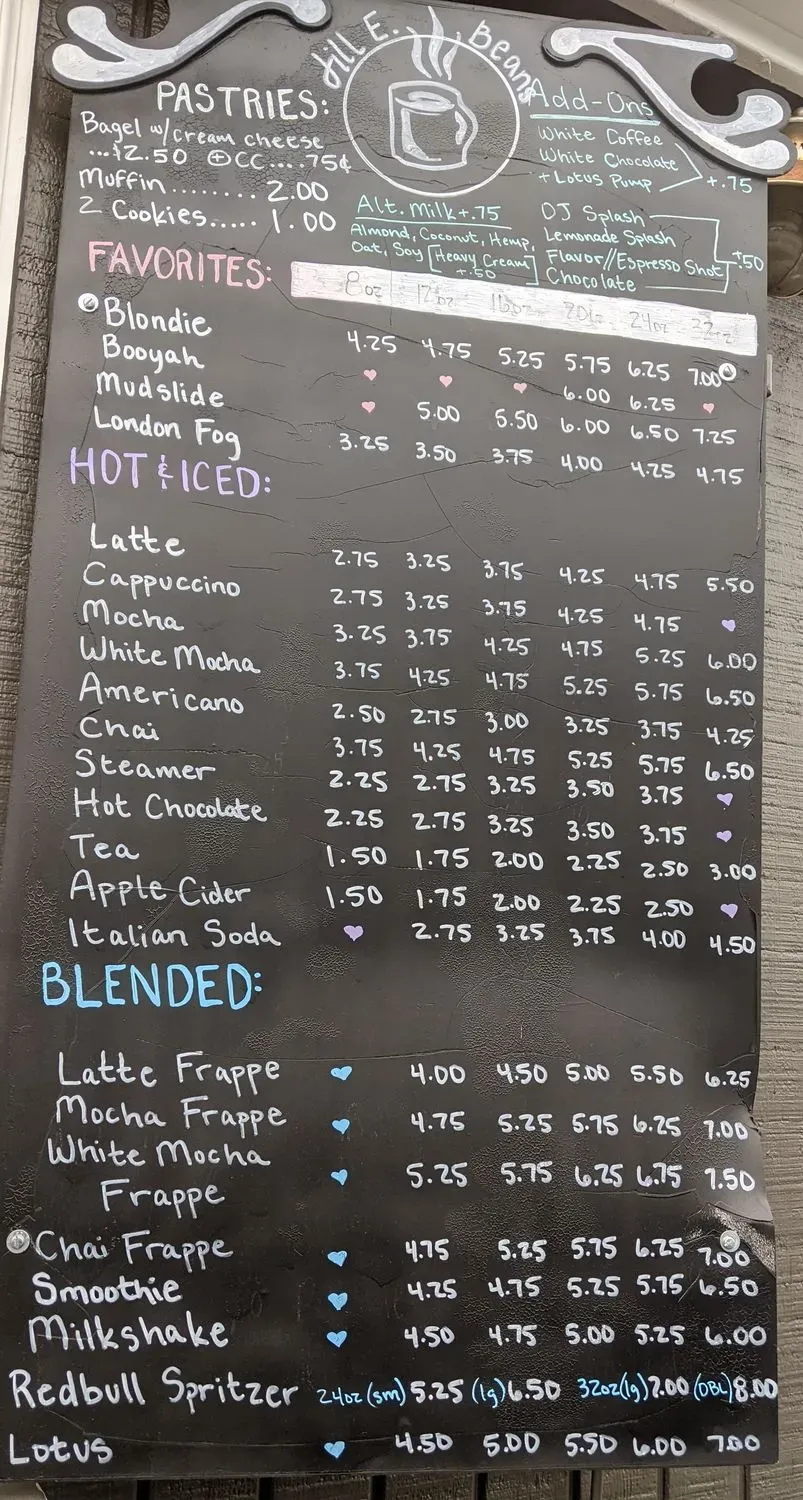 Jill E. Beans
PASTRIES:
Bagel w/cream cheese
...$2.50 ⊕CC....75¢
Muffin........ 2.00
2 Cookies..... 1.00
Add-Ons
White Coffee
White Chocolate
+ Lotus Pump
+.75
Alt. Milk +.75
Almond, Coconut, Hemp,
Oat, Soy [Heavy Cream]
+.50
OJ Splash
Lemonade Splash
Flavor//Espresso Shot
Chocolate
+.50
FAVORITES: 8oz 12oz 16oz 20oz 24oz 32oz
Blondie 4.25 4.75 5.25 5.75 6.25 7.00
Booyah ♥ ♥ ♥ 6.00 6.25 ♥
Mudslide ♥ 5.00 5.50 6.00 6.50 7.25
London Fog 3.25 3.50 3.75 4.00 4.25 4.75
HOT & ICED:
Latte 2.75 3.25 3.75 4.25 4.75 5.50
Cappuccino 2.75 3.25 3.75 4.25 4.75 ♥
Mocha 3.25 3.75 4.25 4.75 5.25 6.00
White Mocha 3.75 4.25 4.75 5.25 5.75 6.50
Americano 2.50 2.75 3.00 3.25 3.75 4.25
Chai 3.75 4.25 4.75 5.25 5.75 6.50
Steamer 2.25 2.75 3.25 3.50 3.75 ♥
Hot Chocolate 2.25 2.75 3.25 3.50 3.75 ♥
Tea 1.50 1.75 2.00 2.25 2.50 3.00
Apple Cider 1.50 1.75 2.00 2.25 2.50 ♥
Italian Soda ♥ 2.75 3.25 3.75 4.00 4.50
BLENDED:
Latte Frappe ♥ 4.00 4.50 5.00 5.50 6.25
Mocha Frappe ♥ 4.75 5.25 5.75 6.25 7.00
White Mocha
Frappe ♥ 5.25 5.75 6.25 6.75 7.50
Chai Frappe ♥ 4.75 5.25 5.75 6.25 7.00
Smoothie ♥ 4.25 4.75 5.25 5.75 6.50
Milkshake ♥ 4.50 4.75 5.00 5.25 6.00
Redbull Spritzer 24oz (sm) 5.25 (lg) 6.50 32oz (lg) 7.00 (DBL) 8.00
Lotus ♥ 4.50 5.00 5.50 6.00 7.00